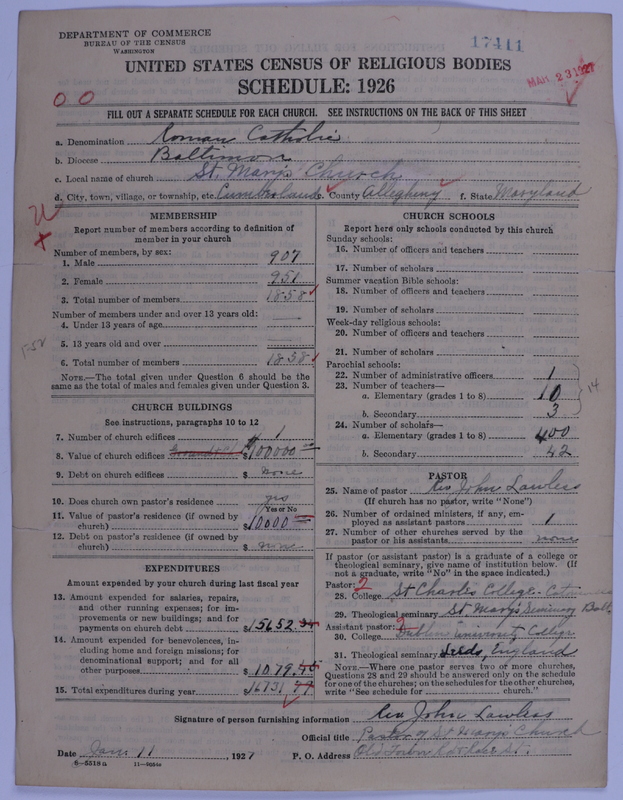 DEPARTMENT OF COMMERCE
BUREAU OF THE CENSUS
WASHINGTON
17411
MAR 23 1927
UNITED STATES CENSUS OF RELIGIOUS BODIES
SCHEDULE: 1926
FILL OUT A SEPARATE SCHEDULE FOR EACH CHURCH. SEE INSTRUCTIONS ON THE BACK OF THIS SHEET
a. Denomination Roman Catholic
b. Diocese Baltimore
c. Local name of church St. Mary's Church
d. City, town, village, or township, etc. Cumberland e. County Allegheny f. State Maryland
MEMBERSHIP
Report number of members according to definition of
member in your church
Number of members, by sex:
1. Male 907
2. Female 951
3. Total number of members 1858
Number of members under and over 13 years old:
4. Under 13 years of age
5. 13 years old and over
6. Total number of members 1858
NOTE.—The total given under Question 6 should be the
same as the total of males and females given under Question 3.
CHURCH BUILDINGS
See instructions, paragraphs 10 to 12
7. Number of church edifices 1
8. Value of church edifices $100000
9. Debt on church edifices $ none
10. Does church own pastor's residence yes
Yes or No
11. Value of pastor's residence (if owned by
church) $10000
12. Debt on pastor's residence (if owned by
church) $ none
EXPENDITURES
Amount expended by your church during last fiscal year
13. Amount expended for salaries, repairs,
and other running expenses; for im-
provements or new buildings; and for
payments on church debt $15652.
14. Amount expended for benevolences, in-
cluding home and foreign missions; for
denominational support; and for all
other purposes $1079.
15. Total expenditures during year $16731
CHURCH SCHOOLS
Report here only schools conducted by this church
Sunday schools:
16. Number of officers and teachers
17. Number of scholars
Summer vacation Bible schools:
18. Number of officers and teachers
19. Number of scholars
Week-day religious schools:
20. Number of officers and teachers
21. Number of scholars
Parochial schools:
22. Number of administrative officers 1
23. Number of teachers—
a. Elementary (grades 1 to 8) 10
b. Secondary 3
14
24. Number of scholars—
a. Elementary (grades 1 to 8) 400
b. Secondary 42
PASTOR
25. Name of pastor Rev John Lawless
(If church has no pastor, write "None")
26. Number of ordained ministers, if any, em-
ployed as assistant pastors 1
27. Number of other churches served by the
pastor or his assistants none
If pastor (or assistant pastor) is a graduate of a college or
theological seminary, give name of institution below. (If
not a graduate, write "No" in the space indicated.)
Pastor: 2
28. College St Charles College
29. Theological seminary St Mary's Seminary Balt.
Assistant pastor: 2
30. College Dublin University College
31. Theological seminary Leeds, England
NOTE.—Where one pastor serves two or more churches,
Questions 28 and 29 should be answered only on the schedule
for one of the churches; on the schedules for the other churches,
write "See schedule for church."
Signature of person furnishing information Rev John Lawless
Official title Pastor of St Marys Church
Date Jan 11, 1927 P. O. Address Oldtown Rd
6-5518a